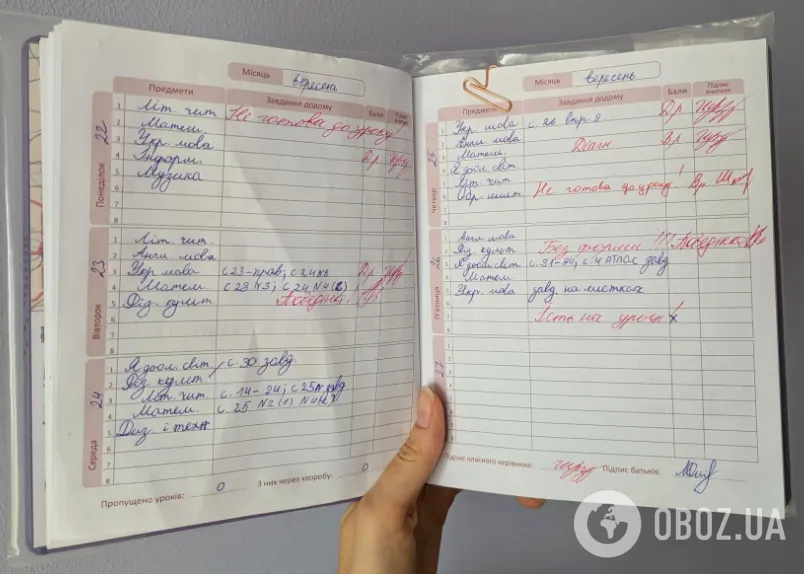 Місяць вересень
Предмети Завдання додому Бали Підпис вчителя
Понеділок 22
1 Літ. чит. Не готова до уроку!
2 Матем.
3 Укр. мова
4 Інформ.
5 Музика
6
7
8
Вівторок 23
1 Літ. чит.
2 Англ. мова
3 Укр. мова с 23-прав; с 24 №6
4 Матем. с 23 №3; с 24 №4(2)
5 Фіз. культ. Поведінка.
6
7
8
Середа 24
1 Я досл. світ. с. 30 завд.
2 Фіз. культ.
3 Літ. чит. с. 14-24; с 25 завд.
4 Матем. с. 25 №2 (1)
5 Диз. і техн
6
7
8
Пропущено уроків: 0 З них через хворобу: 0
Місяць вересень
Предмети Завдання додому Бали Підпис вчителя
Четвер 25
1 Укр. мова с. 26 впр.
2 Англ. мова Діагн
3 Матем.
4 Я досл. світ
5 Літ. чит.
6 Обр. мист Не готова до уроку!
П'ятниця 26
Англ. мова
Фіз. культ. Без форми!!! Поведінка
Я досл. світ. с. 4 АТЛАС завд
Матем.
Укр. мова завд. на листках
Їсть на уроці!
27
Підпис класного керівника Підпис батьків:
OBOZ.UA